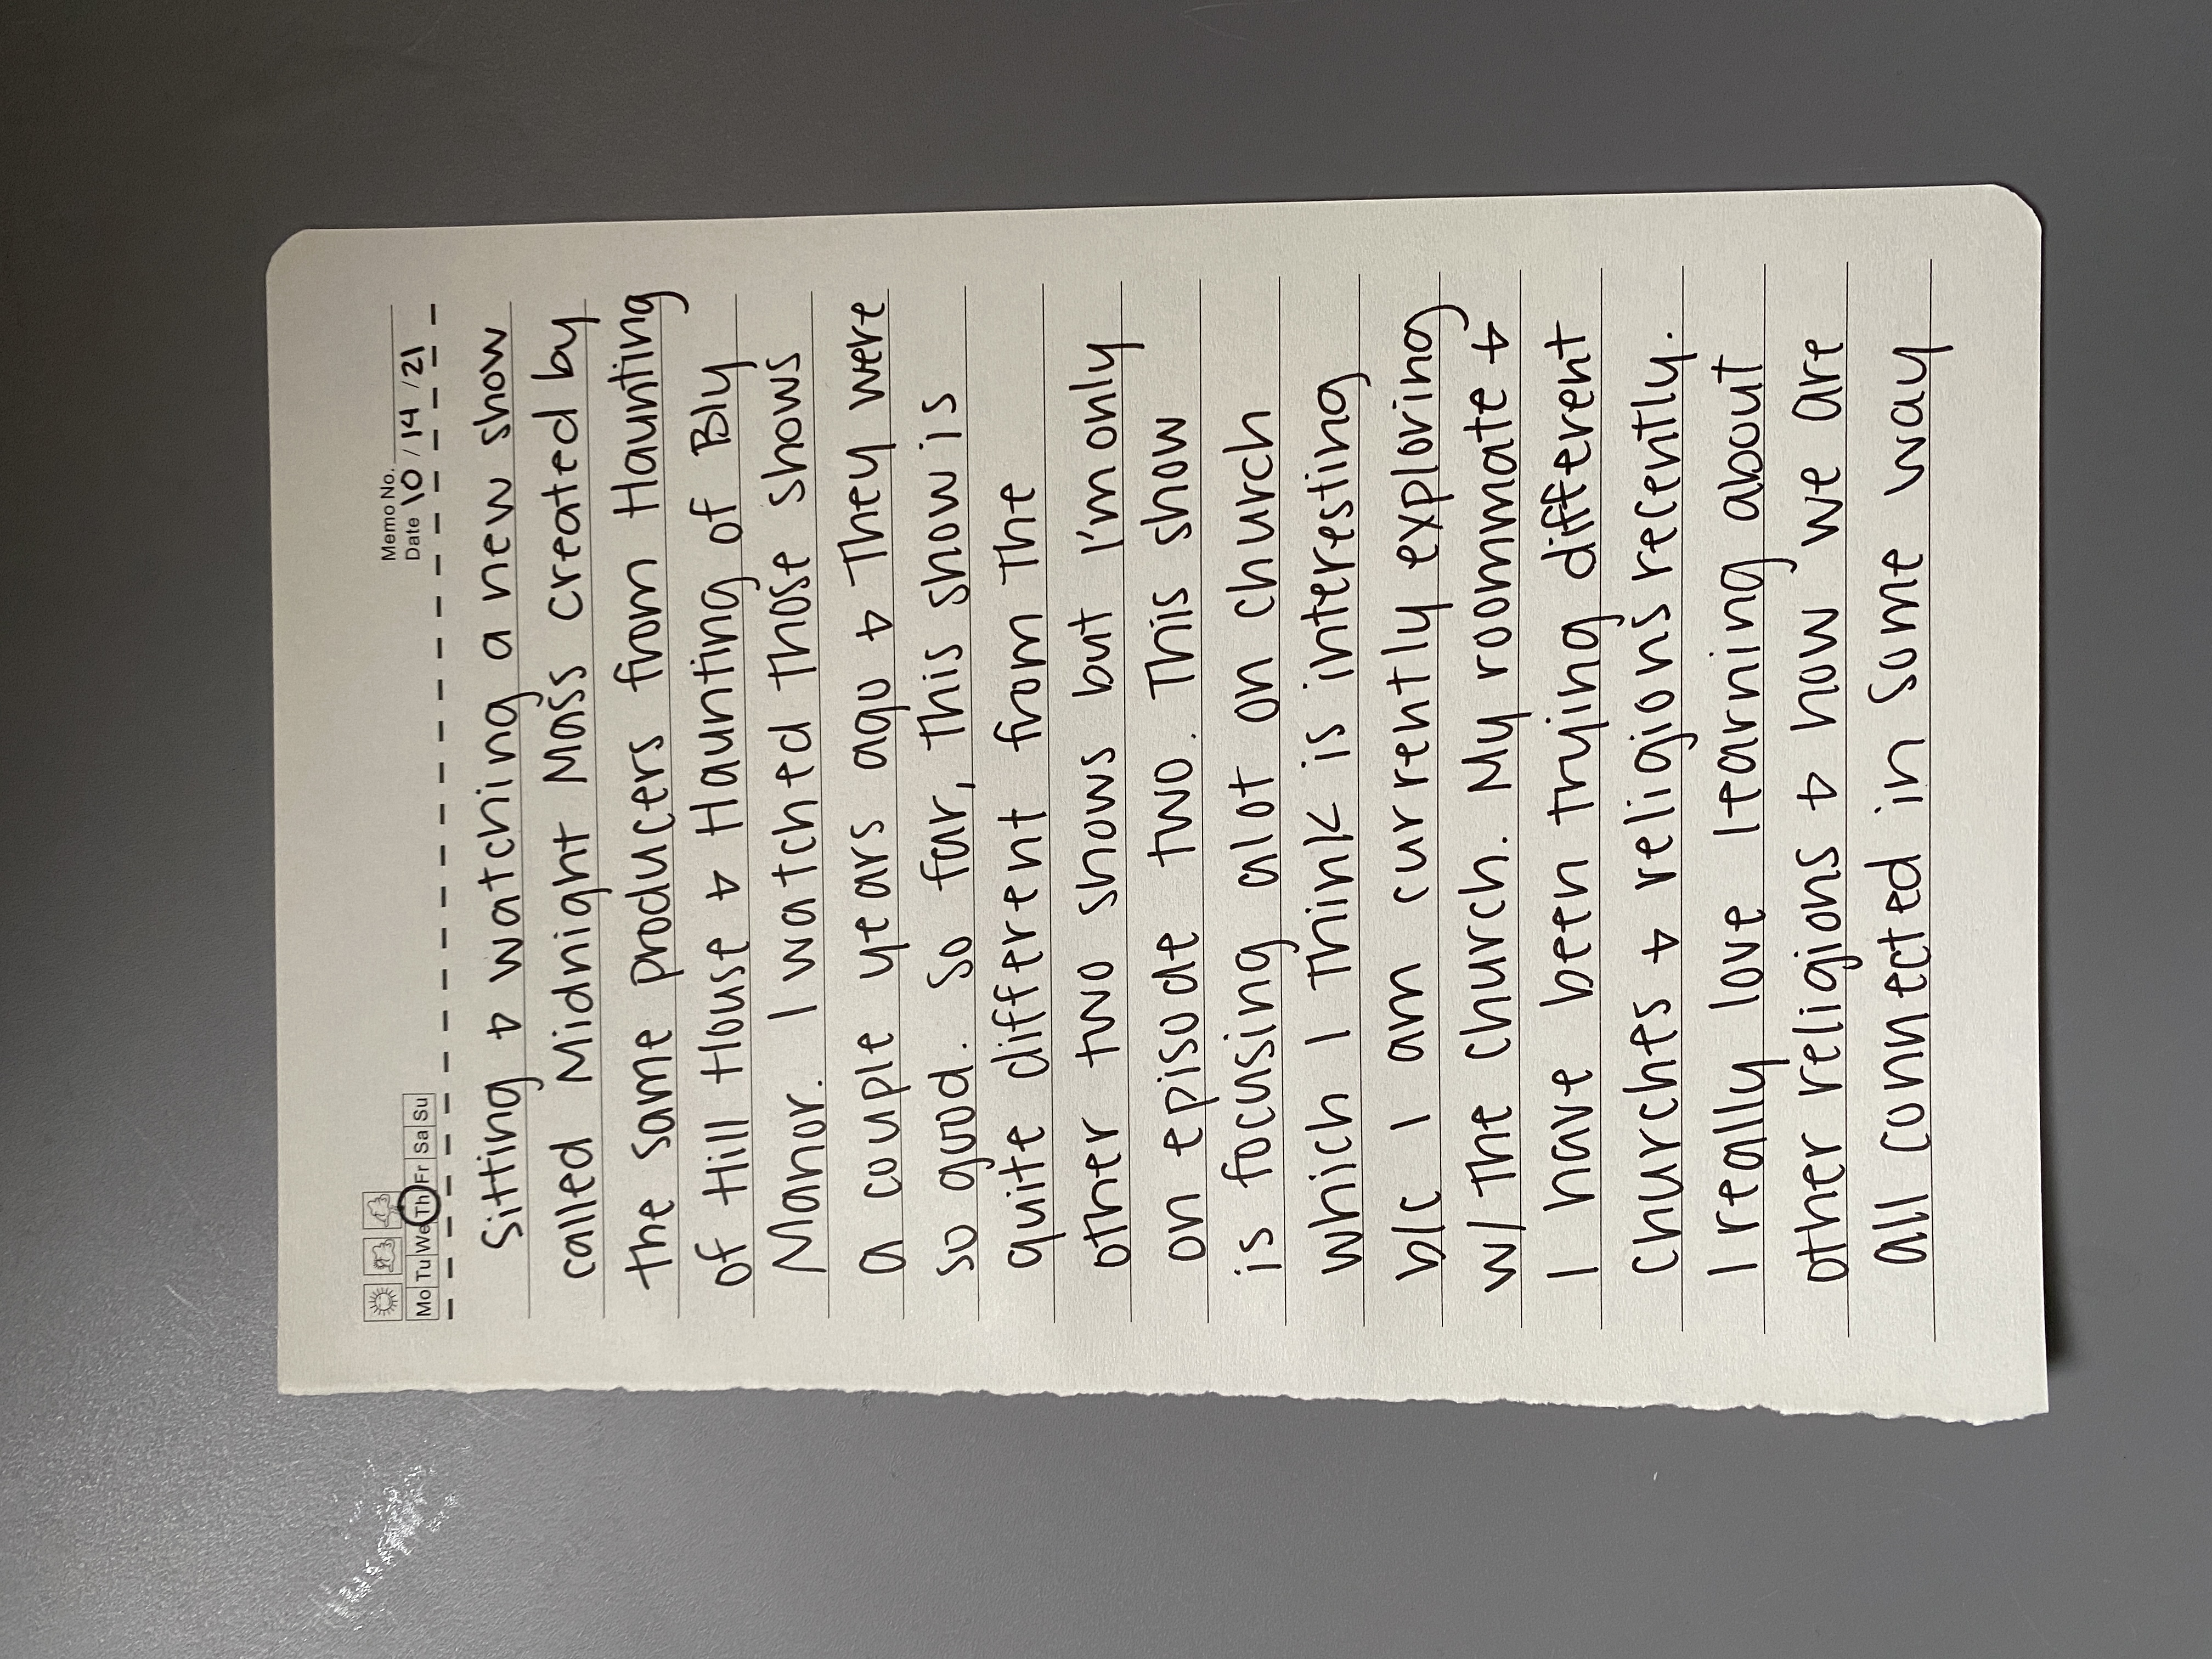 Mo Tu We Th Fr Sa Su
Memo No.
Date 10 / 14 / 21
Sitting & watching a new show
called Midnight Mass created by
the same producers from Haunting
of Hill House & Haunting of Bly
Manor. I watched those shows
a couple years ago & They were
so good. So far, this show is
quite different from the
other two shows but I'm only
on episode two. This show
is focusing alot on church
which I think is interesting
b/c I am currently exploring
w/ the church. My roommate &
I have been trying different
churches & religions recently.
I really love learning about
other religions & how we are
all connected in some way